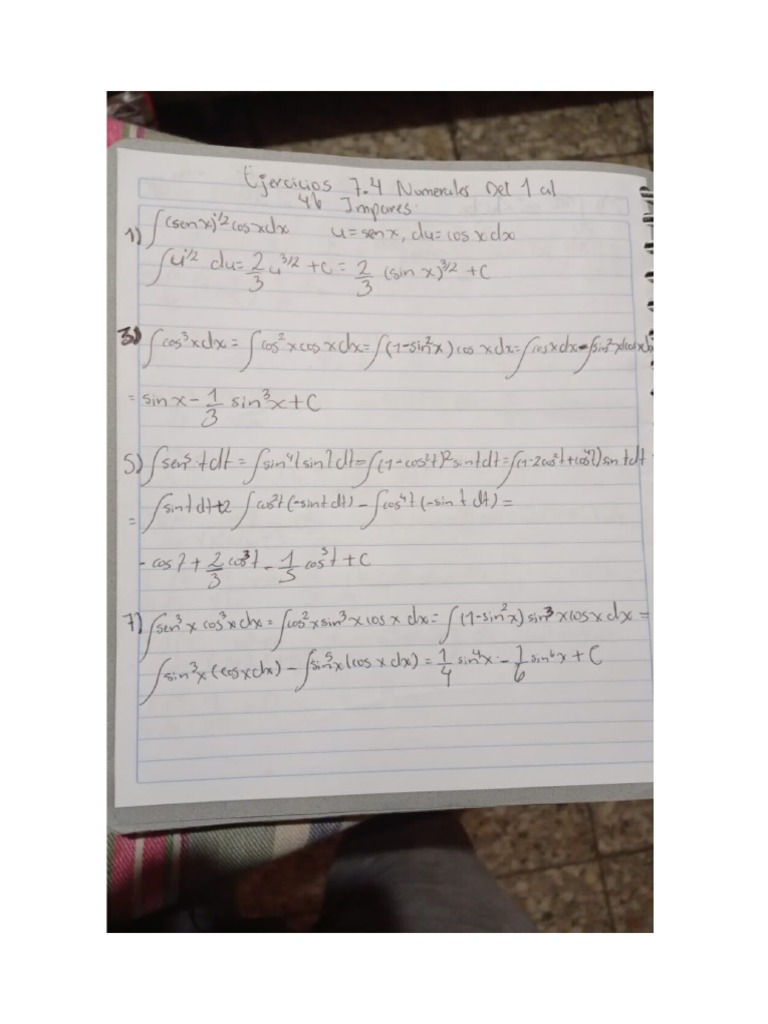 Ejercicios 7.4 Numerales Del 1 al
46 Impares:
1) ∫(sen x)^1/2 cos x dx u = sen x, du = cos x dx
∫u^1/2 du = 2/3 u^3/2 + C = 2/3 (sin x)^3/2 + C
3) ∫cos³x dx = ∫cos²x cos x dx = ∫(1-sin²x) cos x dx = ∫cos x dx - ∫sin²x(cos x dx
= sin x - 1/3 sin³x + C
5) ∫sen⁵ t dt = ∫sin⁴(sin t dt = ∫(1-cos²t)² sin t dt = ∫(1-2cos²t + cos⁴t) sin t dt
= ∫sin t dt + 2 ∫cos²t (-sin t dt) - ∫cos⁴t (-sin t dt) =
- cos t + 2/3 cos³t - 1/5 cos⁵t + C
7) ∫sen³x cos³x dx = ∫cos²x sin³x cos x dx = ∫(1-sin²x) sin³x cos x dx =
∫sin³x (cos x dx) - ∫sin⁵x (cos x dx) = 1/4 sin⁴x - 1/6 sin⁶x + C